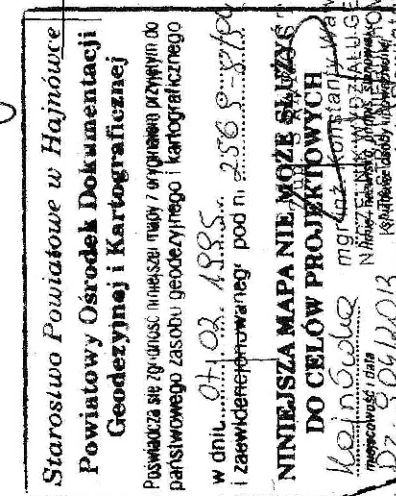 Starostwo Powiatowe w Hajnówce
Powiatowy Ośrodek Dokumentacji
Geodezyjnej i Kartograficznej
Poświadcza się zgodność niniejszej mapy z oryginałem przyjętym do
państwowego zasobu geodezyjnego i kartograficznego
w dniu 07.02.1995.
i zaewidencjonowanego pod nr 2569-8/
NINIEJSZA MAPA NIE MOŻE SŁUŻYĆ
DO CELÓW PROJEKTOWYCH
mgr inż. Konstanty
Hajnówka
miejscowość i data